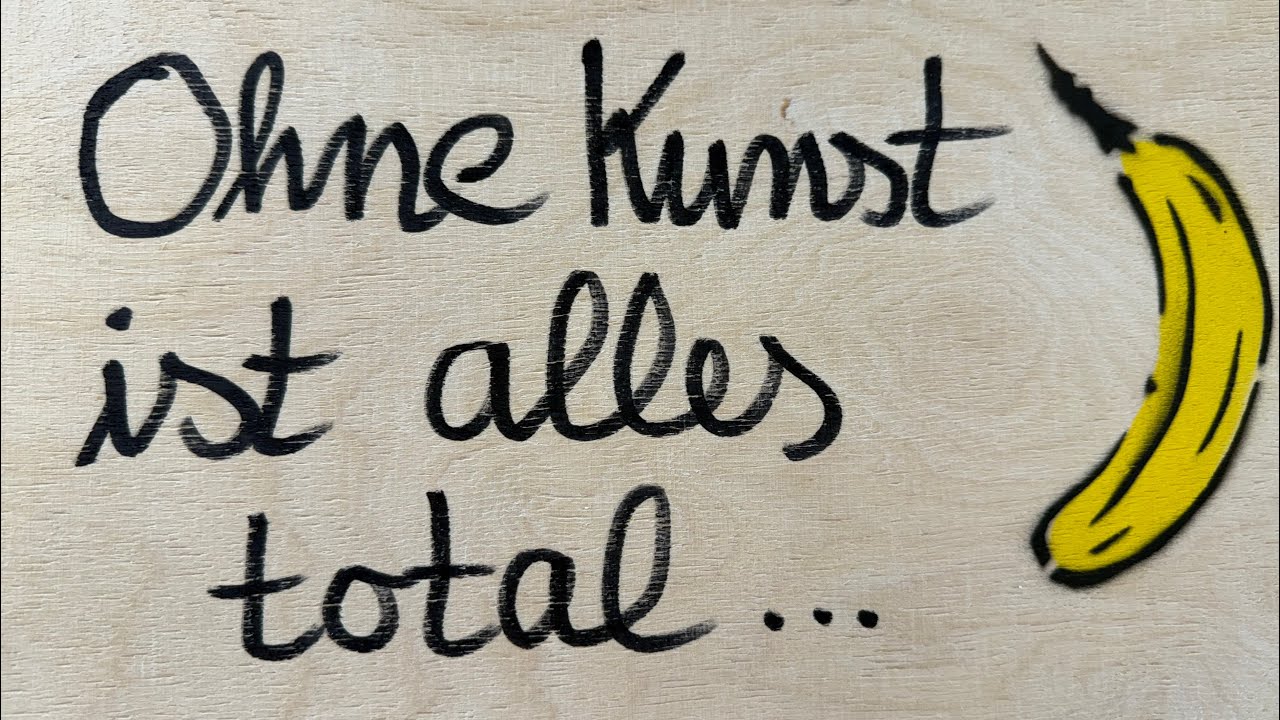 Ohne Kunst
ist alles
total ...